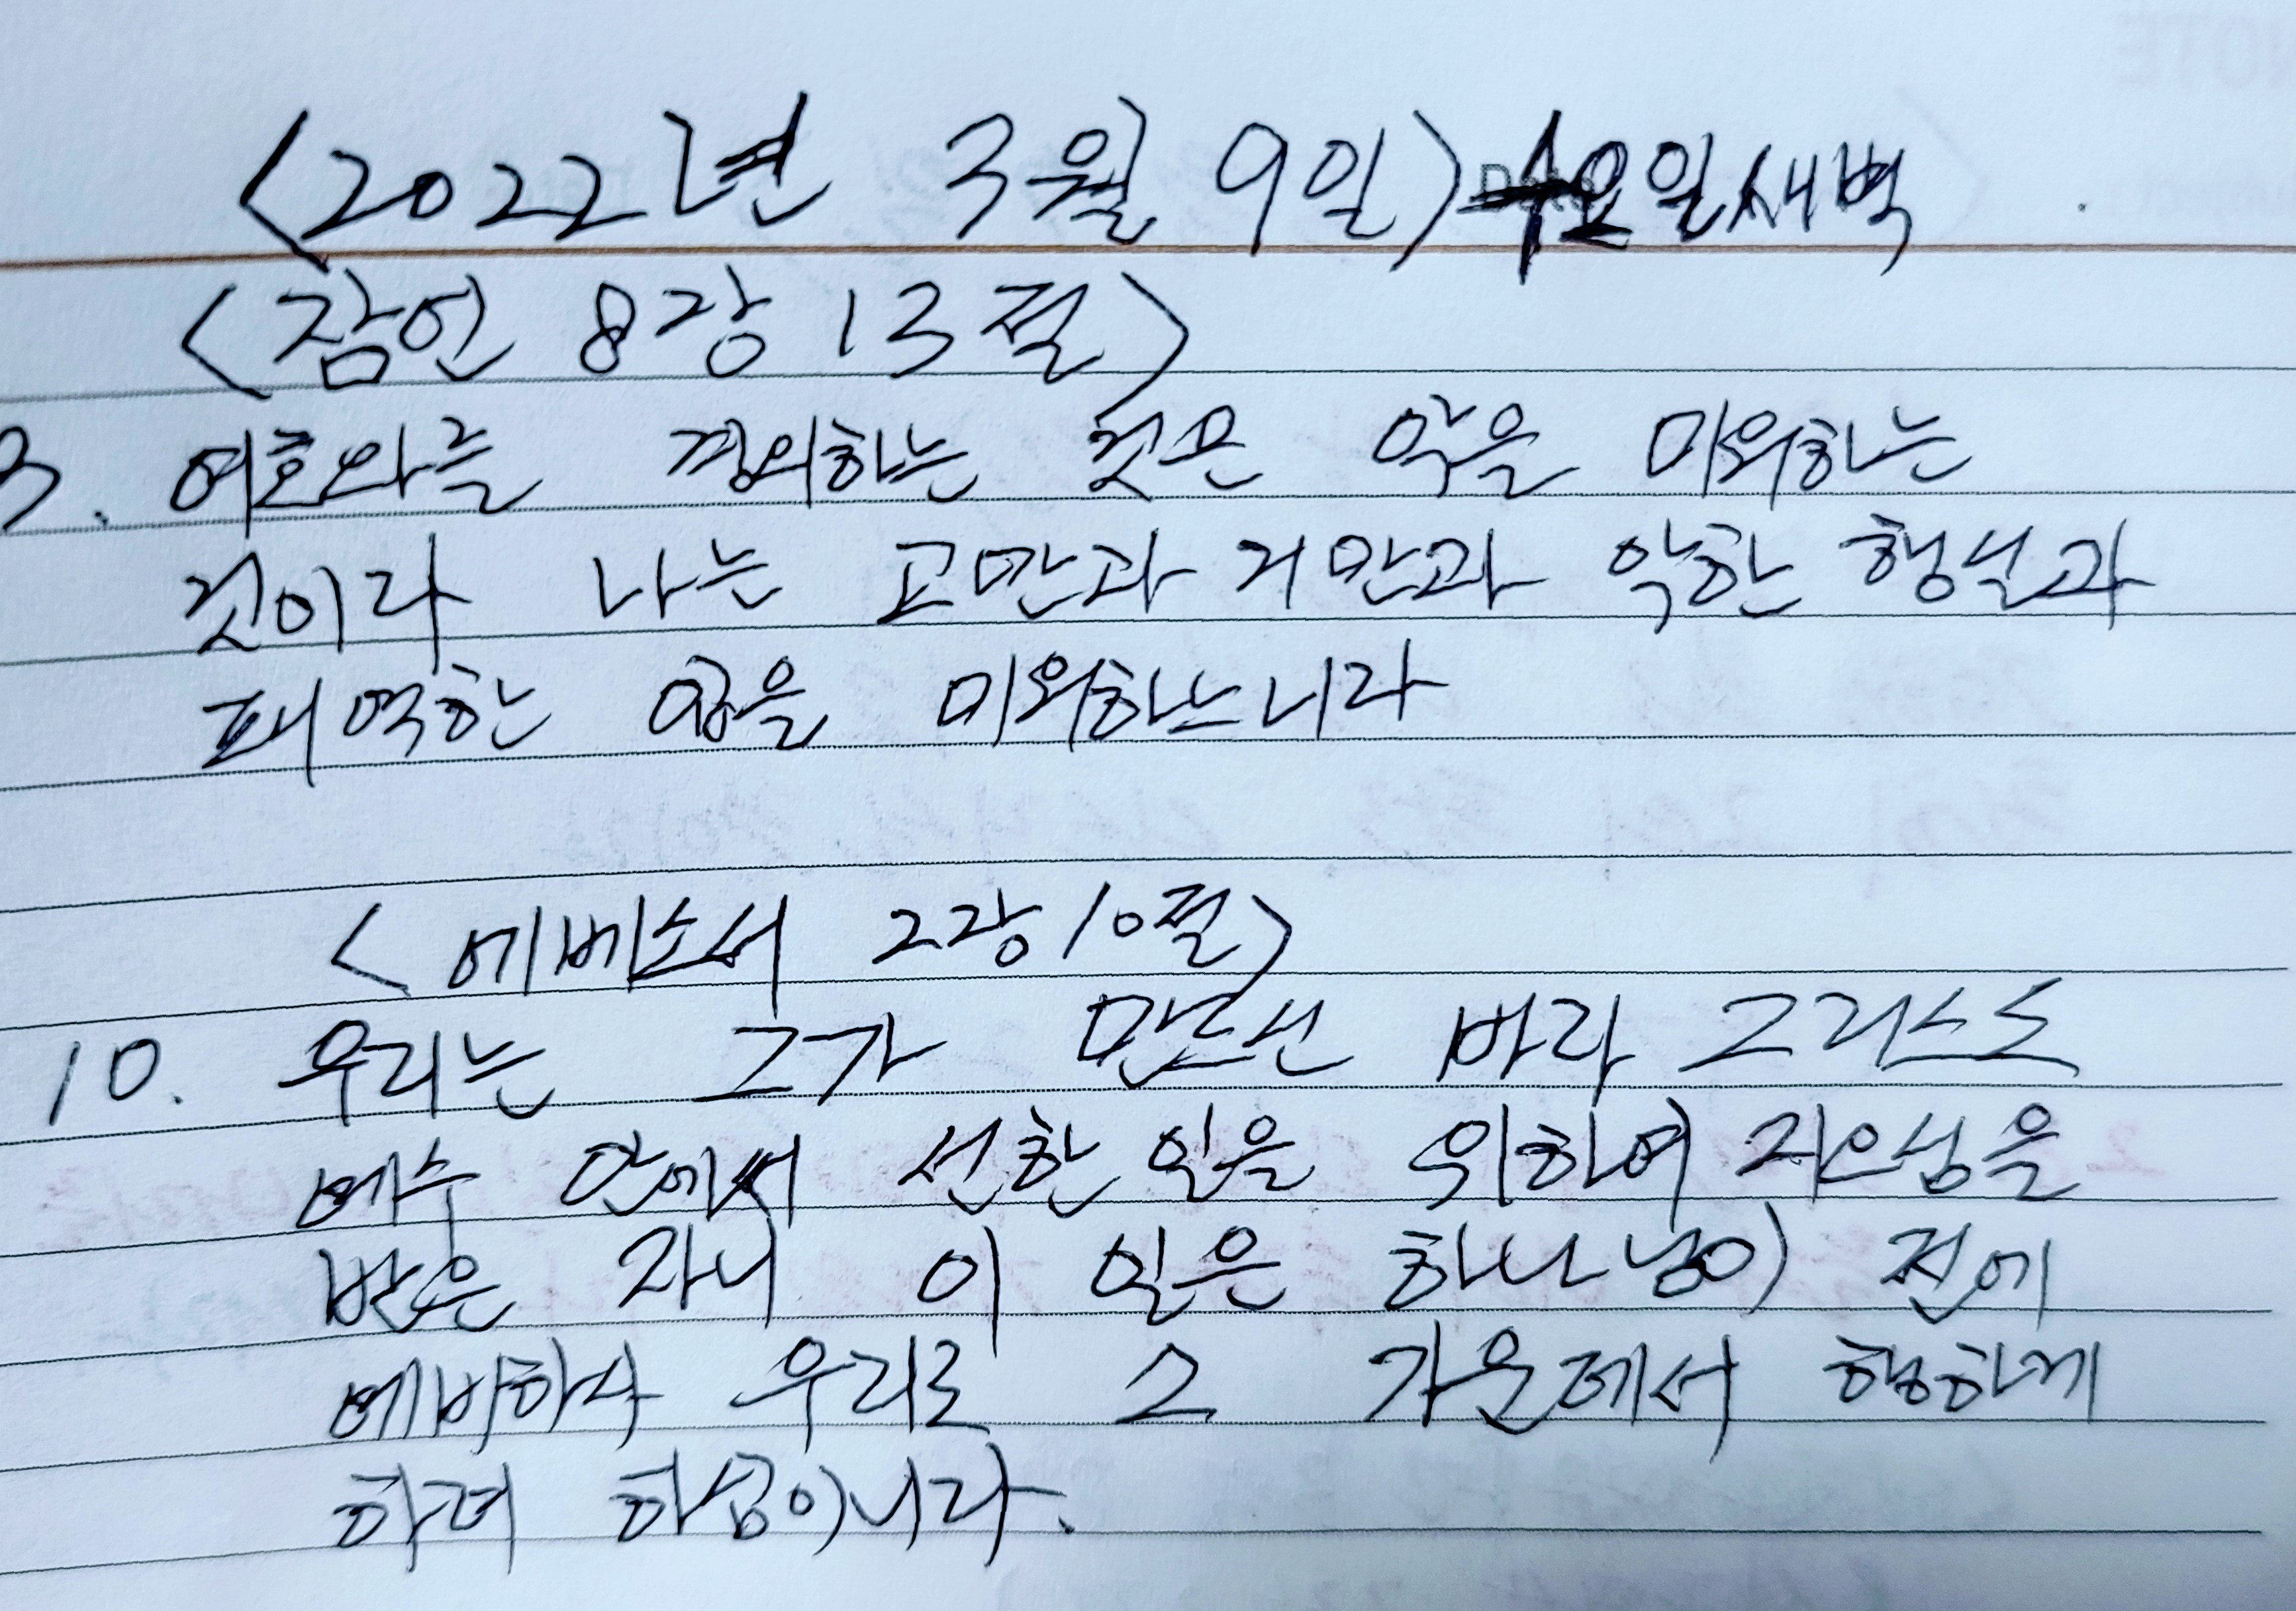 <2022년 3월 9일> 수요일새벽
<잠언 8장 13절>
3. 여호와를 경외하는 것은 악을 미워하는
것이라 나는 교만과 거만과 악한 행실과
패역한 입을 미워하느니라
<에베소서 2장 10절>
10. 우리는 그가 만드신 바라 그리스도
예수 안에서 선한 일을 위하여 지으심을
받은 자니 이 일은 하나님이 전에
예비하사 우리로 그 가운데서 행하게
하려 하심이니라.